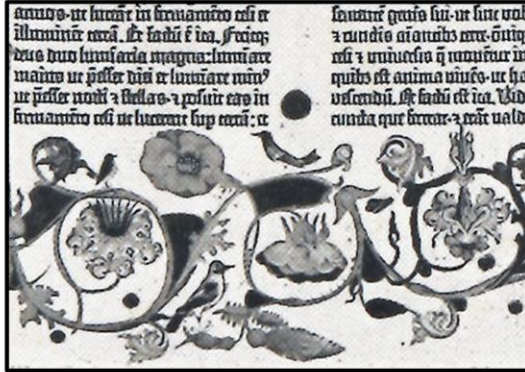 annos. ut luceāt in firmamēto celi et
illuminēt terrā. Et factū ē ita. Fecitq;
deus duo luminaria magna: luminare
maius ut p̄esset diei et luminare min⁹
ut p̄esset nocti ⁊ stellas. ⁊ posuit eas in
firmamēto celi ut lucerent sup terrā: et
⁊ cundis aīantibz terre. ōniq
celi ⁊ universis q̄ moventur in
quibz est anima vivēs. ut ha
vescendū. Et factū est ita. Vidi
cuncta que fecerat. ⁊ erāt vald